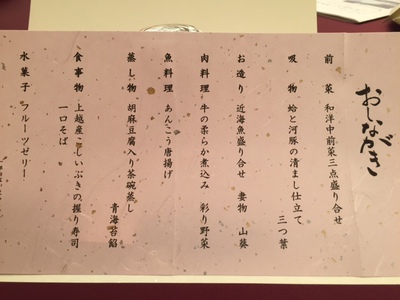 おしながき
前菜 和洋中前菜三点盛り合せ
吸物 蛤と河豚の清まし仕立て 三つ葉
お造り 近海魚盛り合せ 妻物 山葵
肉料理 牛の柔らか煮込み 彩り野菜
魚料理 あんこう唐揚げ
蒸し物 胡麻豆腐入り茶碗蒸し
青海苔餡
食事物 上越産こしいぶきの握り寿司
一口そば
水菓子 フルーツゼリー